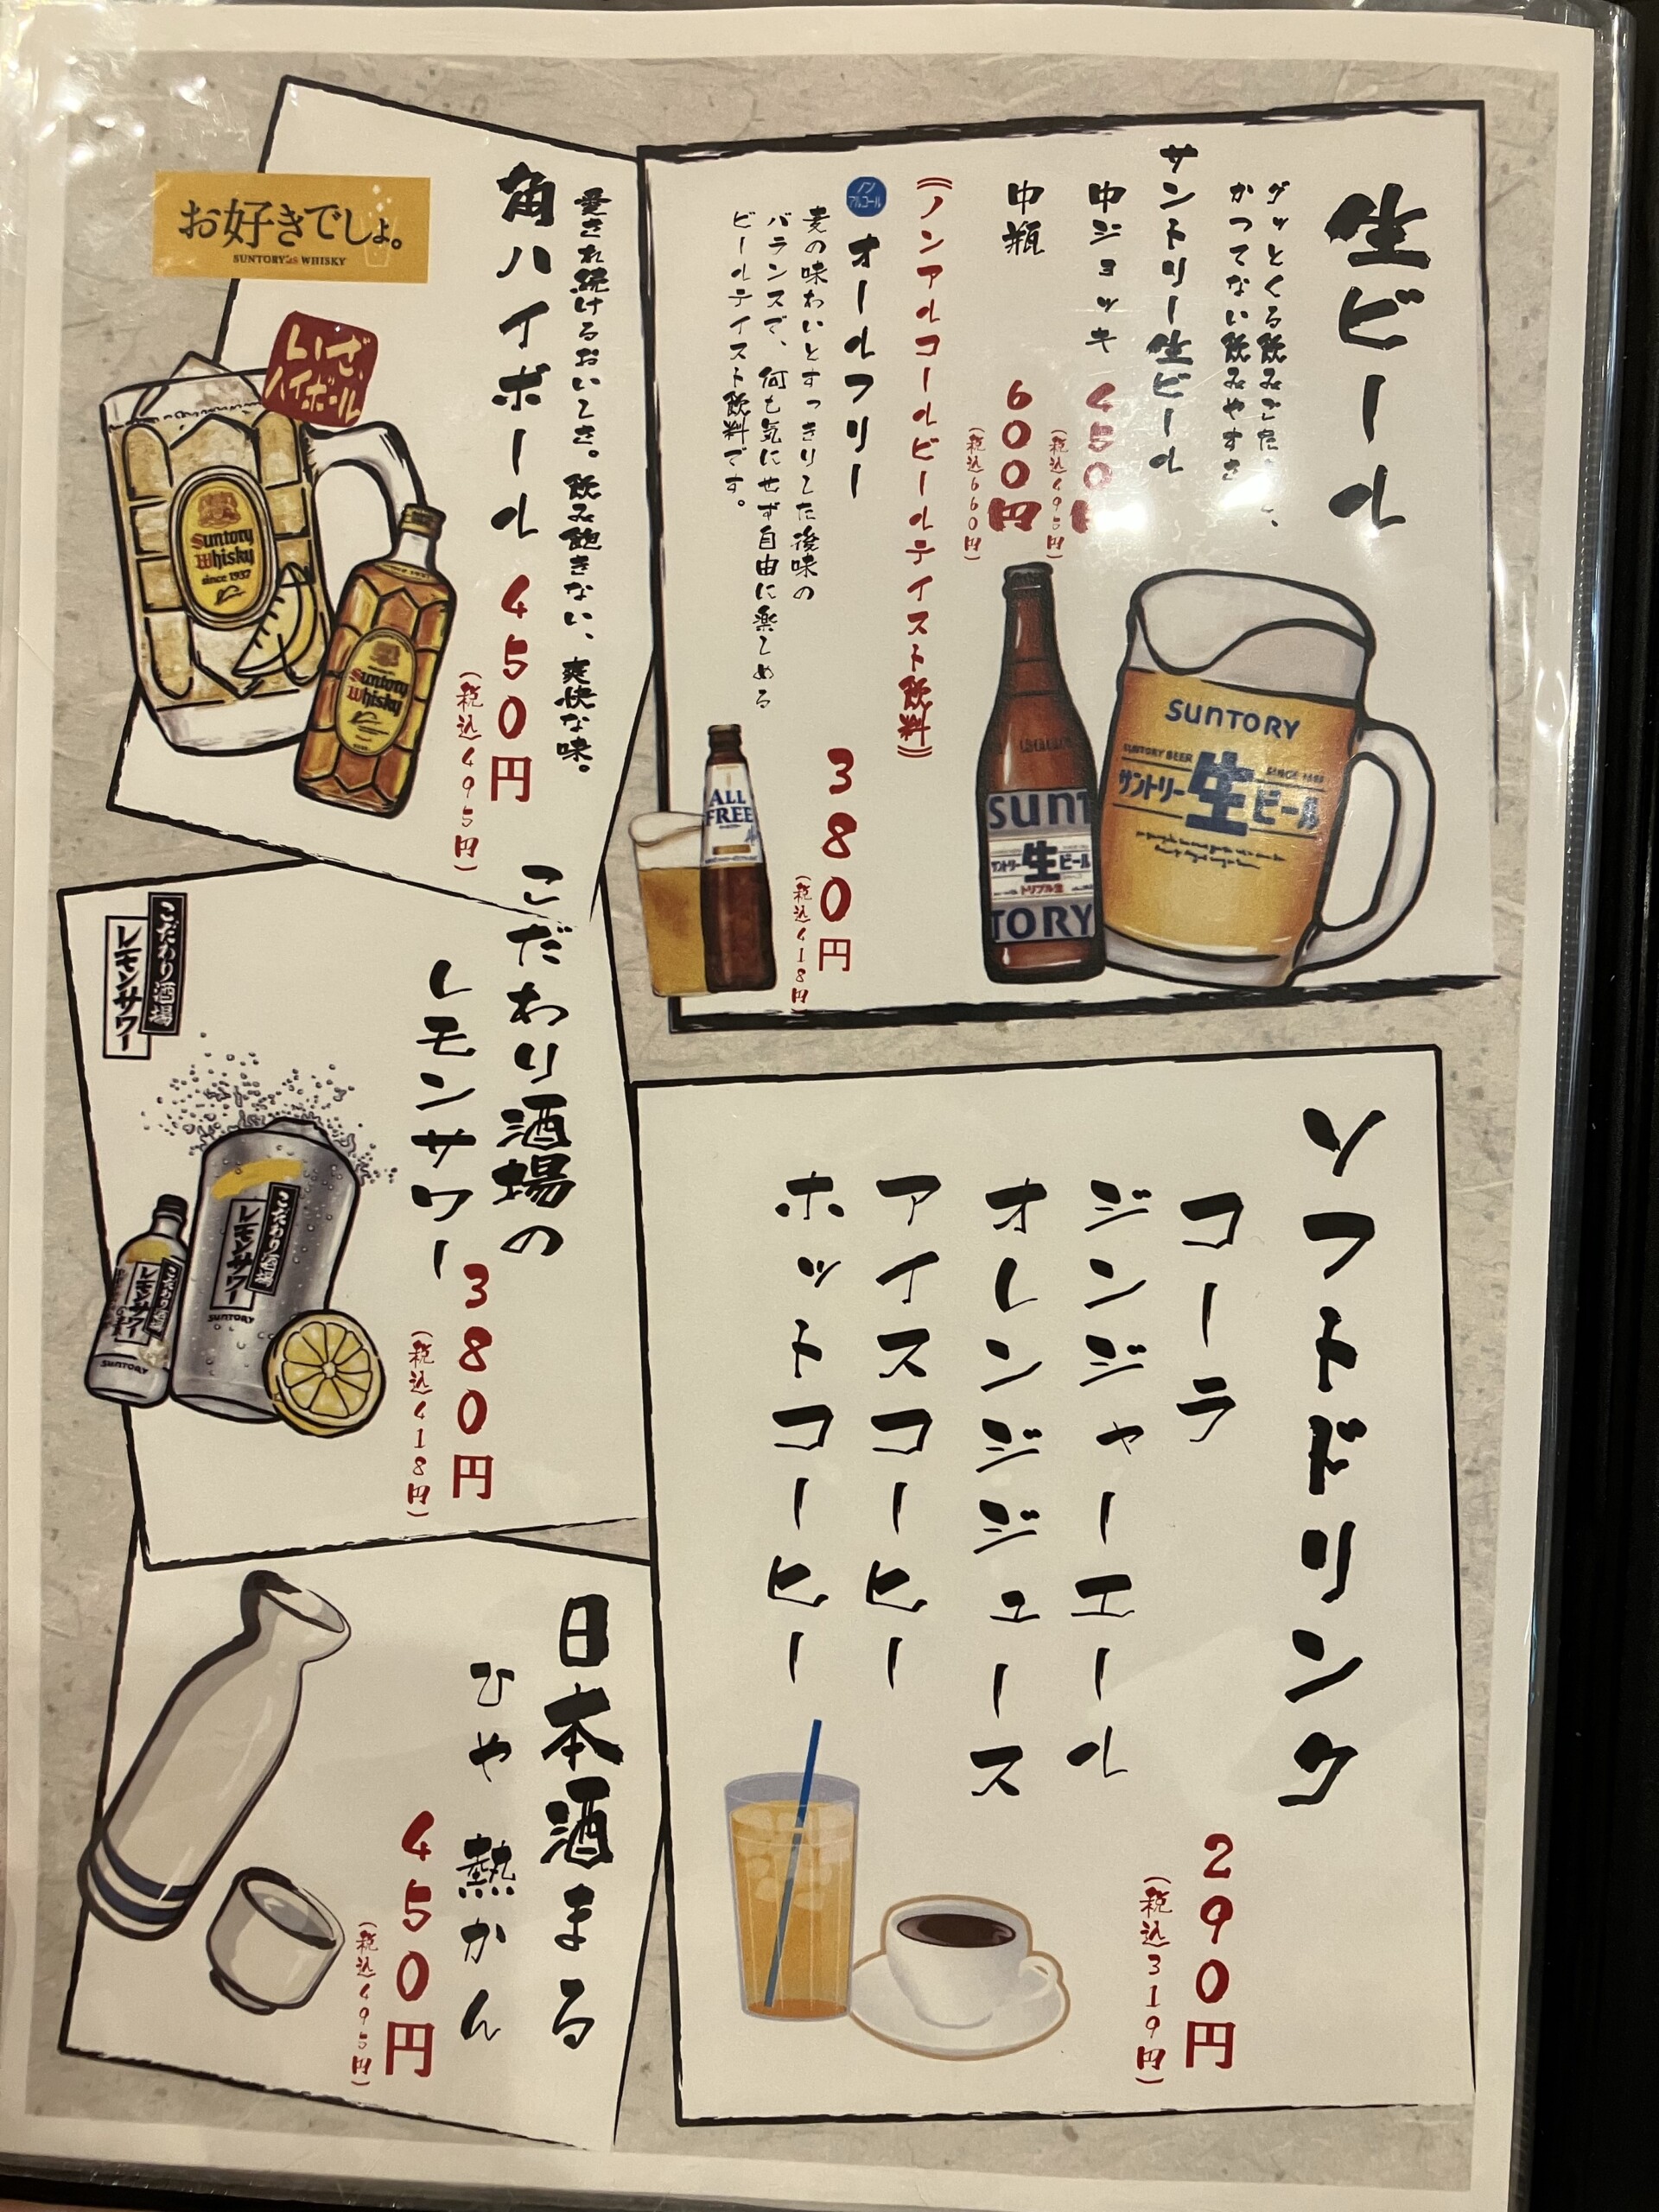 生ビール
グッとくる飲みごたえ、
かつてない飲みやすさ
サントリー生ビール
中ジョッキ 450円
(税込495円)
中瓶 600円
(税込660円)
SUNTORY
SUNTORY BEER
サントリー生ビール
SUNT
サントリー生ビール
トリプル生
TORY
《ノンアルコールビールテイスト飲料》
ノンアルコール
オールフリー
380円
(税込418円)
麦の味わいとすっきりした後味の
バランスで、何も気にせず自由に楽しめる
ビールテイスト飲料です。
ALL
FREE
愛され続けるおいしさ。飲み飽きない、爽快な味。
角ハイボール 450円
(税込495円)
お好きでしょ。
SUNTORY WHISKY
いざ、
ハイボール
Suntory
Whisky
since 1937
Suntory
Whisky
ソフトドリンク
コーラ
ジンジャーエール
オレンジジュース
アイスコーヒー
ホットコーヒー
290円
(税込319円)
こだわり酒場の
レモンサワー
380円
(税込418円)
こだわり酒場
レモンサワー
こだわり酒場
レモンサワー
SUNTORY
こだわり酒場
レモンサワー
SUNTORY
日本酒まる
ひや 熱かん
450円
(税込495円)